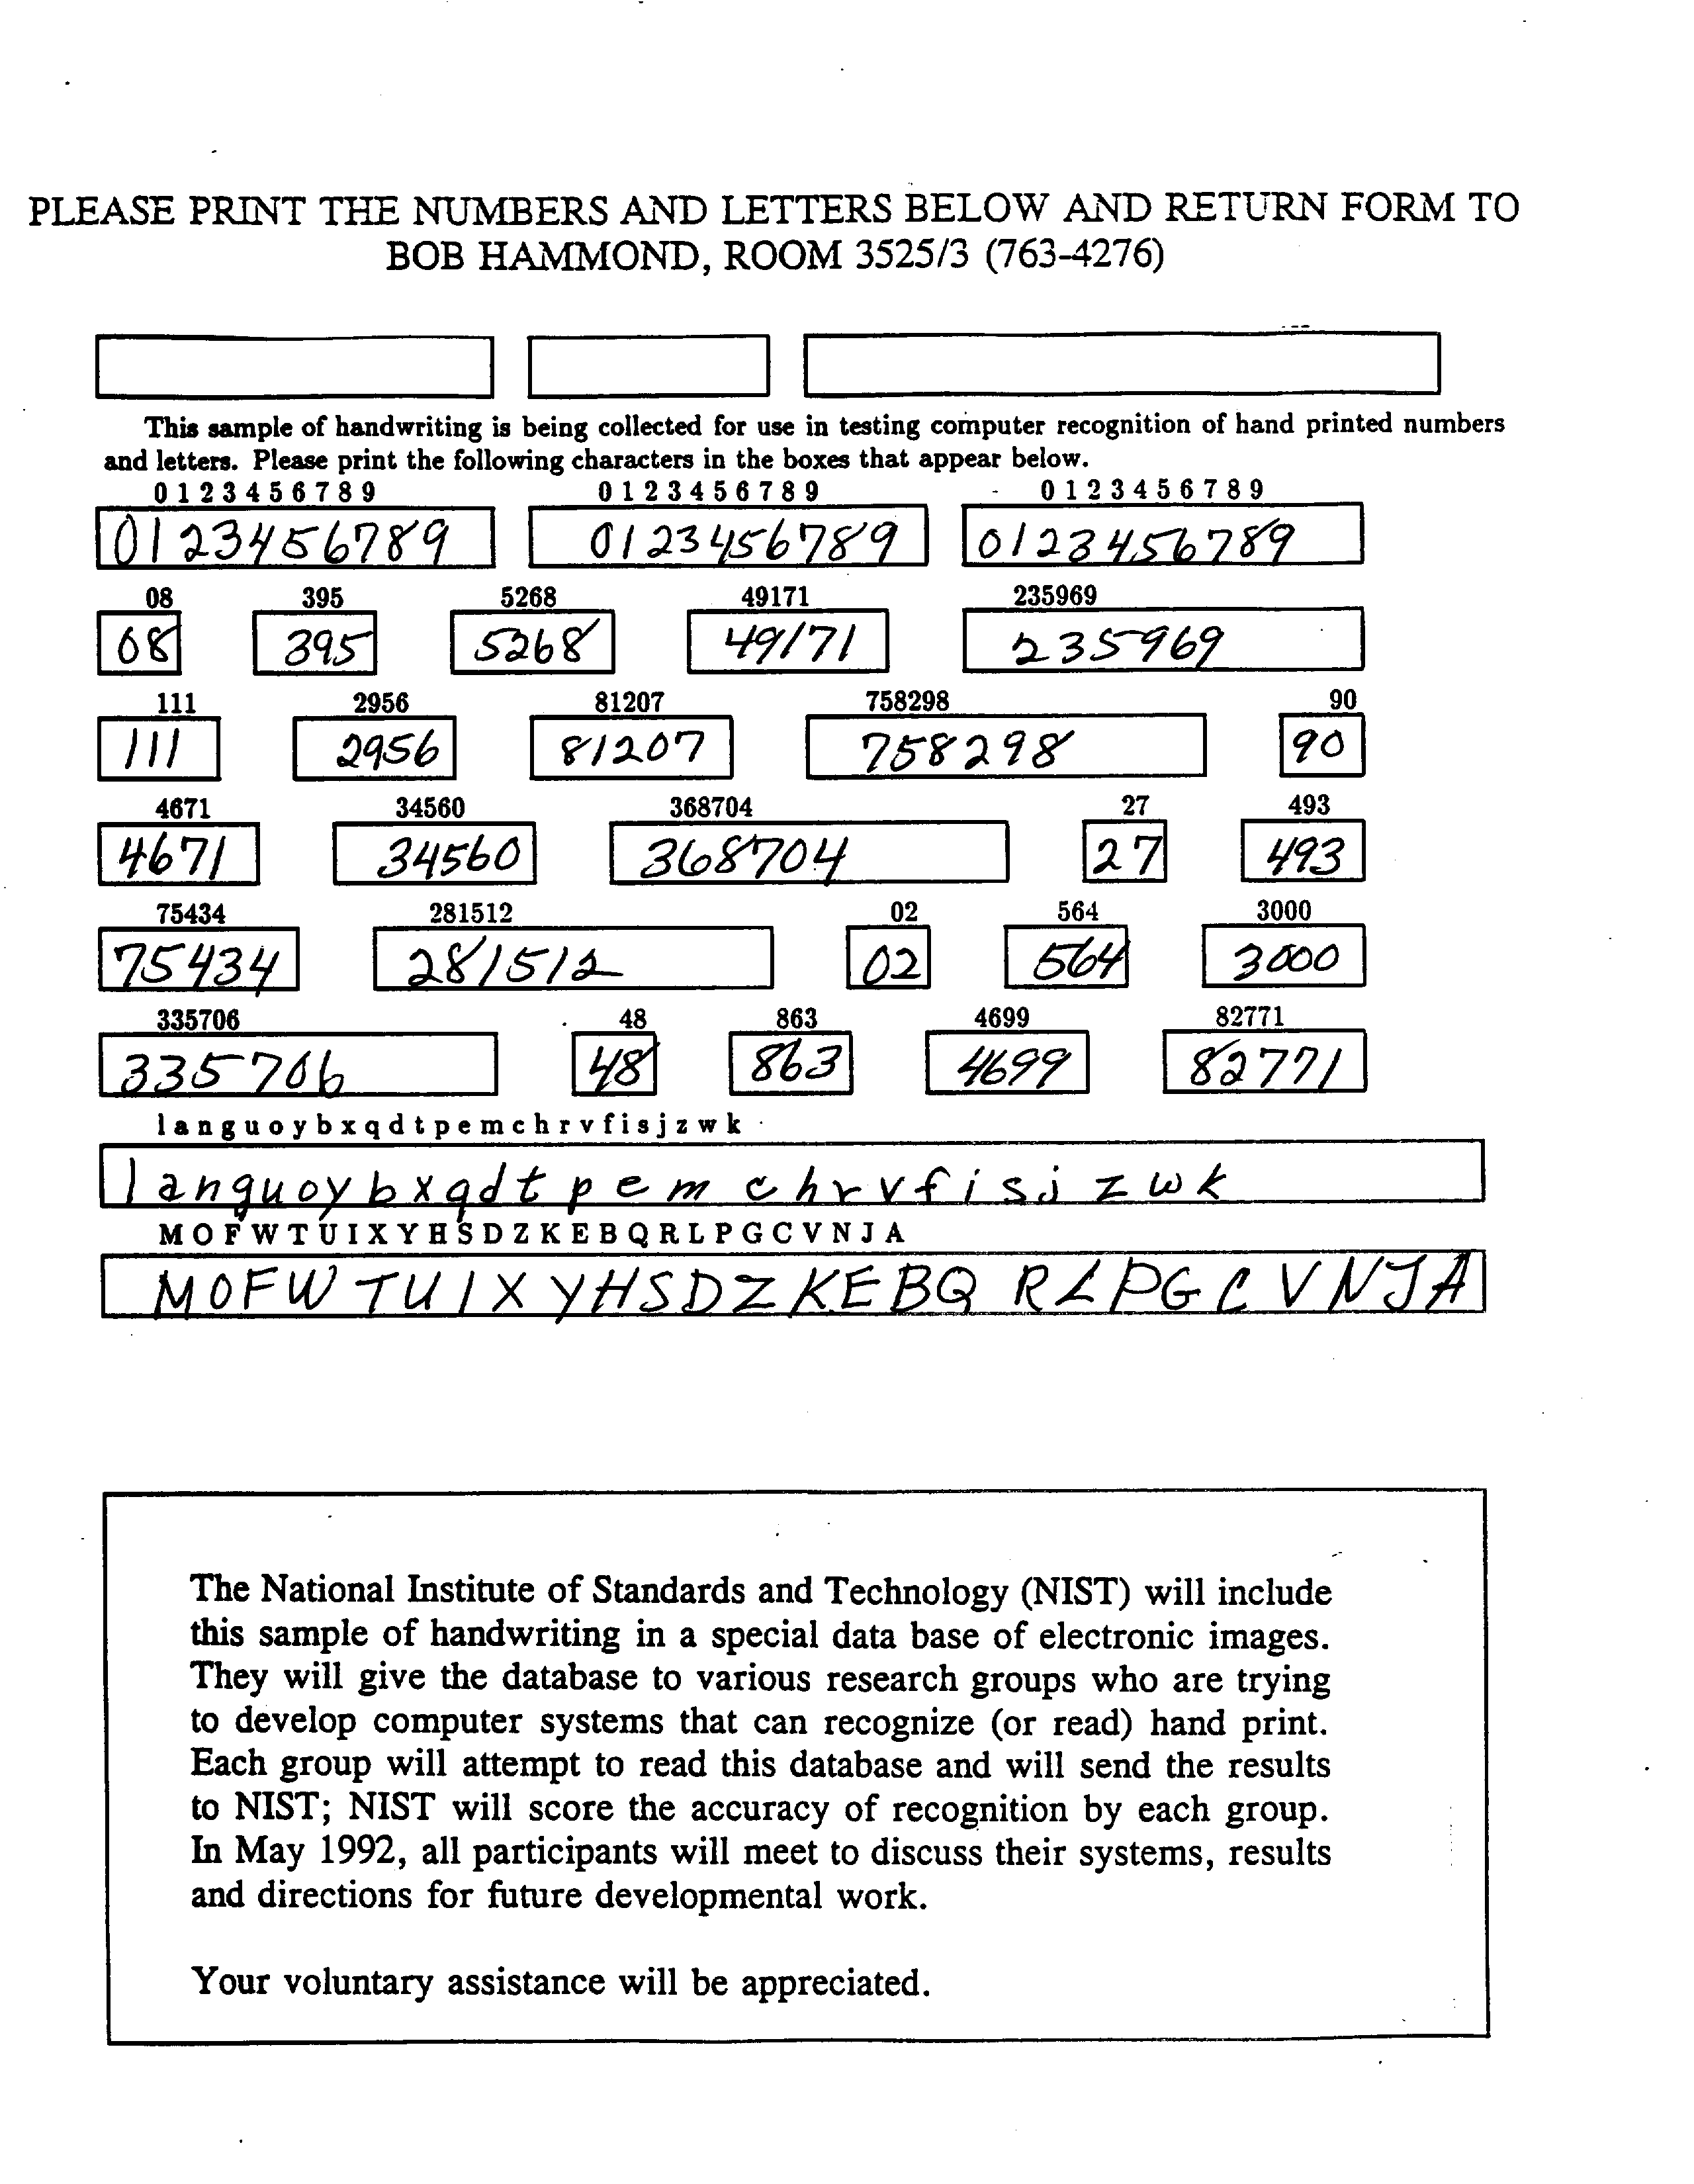 PLEASE PRINT THE NUMBERS AND LETTERS BELOW AND RETURN FORM TO
BOB HAMMOND, ROOM 3525/3 (763-4276)
This sample of handwriting is being collected for use in testing computer recognition of hand printed numbers
and letters. Please print the following characters in the boxes that appear below.
0 1 2 3 4 5 6 7 8 9 0 1 2 3 4 5 6 7 8 9 0 1 2 3 4 5 6 7 8 9
0123456789 0123456789 0123456789
08 395 5268 49171 235969
08 395 5268 49171 235969
111 2956 81207 758298 90
111 2956 81207 758298 90
4671 34560 368704 27 493
4671 34560 368704 27 493
75434 281512 02 564 3000
75434 281512 02 564 3000
335706 48 863 4699 82771
335706 48 863 4699 82771
l a n g u o y b x q d t p e m c h r v f i s j z w k
l a n g u o y b x q d t p e m c h r v f i s j z w k
M O F W T U I X Y H S D Z K E B Q R L P G C V N J A
M O F W T U I X Y H S D Z K E B Q R L P G C V N J A
The National Institute of Standards and Technology (NIST) will include
this sample of handwriting in a special data base of electronic images.
They will give the database to various research groups who are trying
to develop computer systems that can recognize (or read) hand print.
Each group will attempt to read this database and will send the results
to NIST; NIST will score the accuracy of recognition by each group.
In May 1992, all participants will meet to discuss their systems, results
and directions for future developmental work.
Your voluntary assistance will be appreciated.